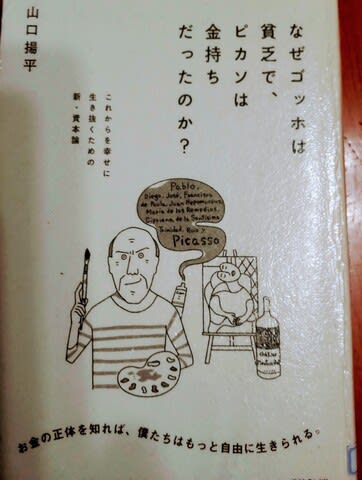 なぜゴッホは
貧乏で、
ピカソは
金持ち
だったのか?
これからを幸せに
生き抜くための
新・資本論
山口揚平
Pablo,
Diego, José, Francisco
de Paula, Juan Nepomuceno,
María de los Remedios,
Cipriano de la Santísima
Trinidad, Ruiz y
Picasso
お金の正体を知れば、僕たちはもっと自由に生きられる。